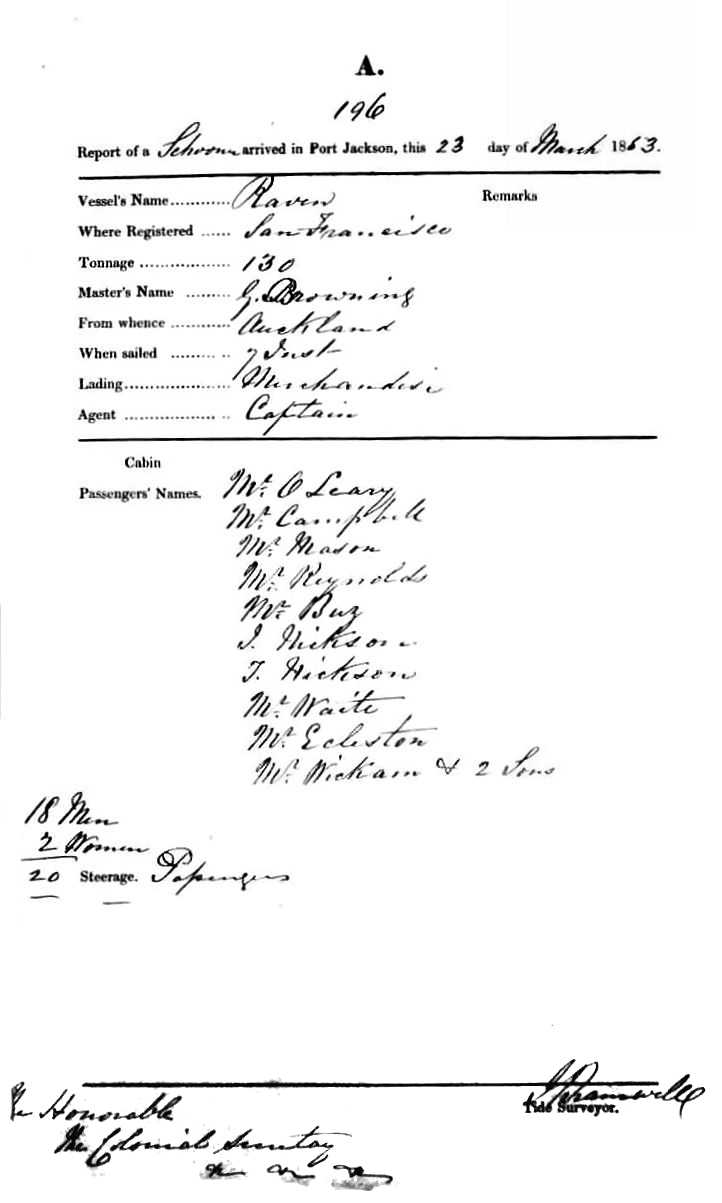 A.
196
Report of a Schooner arrived in Port Jackson, this 23 day of March 1853.
Vessel's Name............ Raven Remarks
Where Registered ...... San Francisco
Tonnage .................. 130
Master's Name ......... G. Browning
From whence ............ Auckland
When sailed ......... .. 7 Inst
Lading..................... Merchandise
Agent .................. .. Captain
Cabin
Passengers' Names. Mr. O Leary
Mr. Campbell
Mr. Mason
Mr. Reynolds
Mr. Buz
J. Hickson
T. Hickson
Mr. Waite
Mr. Ecleston
Mr. Wickam & 2 Sons
18 Men
2 Women
20 Steerage. Passengers
Tide Surveyor.
The Honorable
The Colonial Secretary